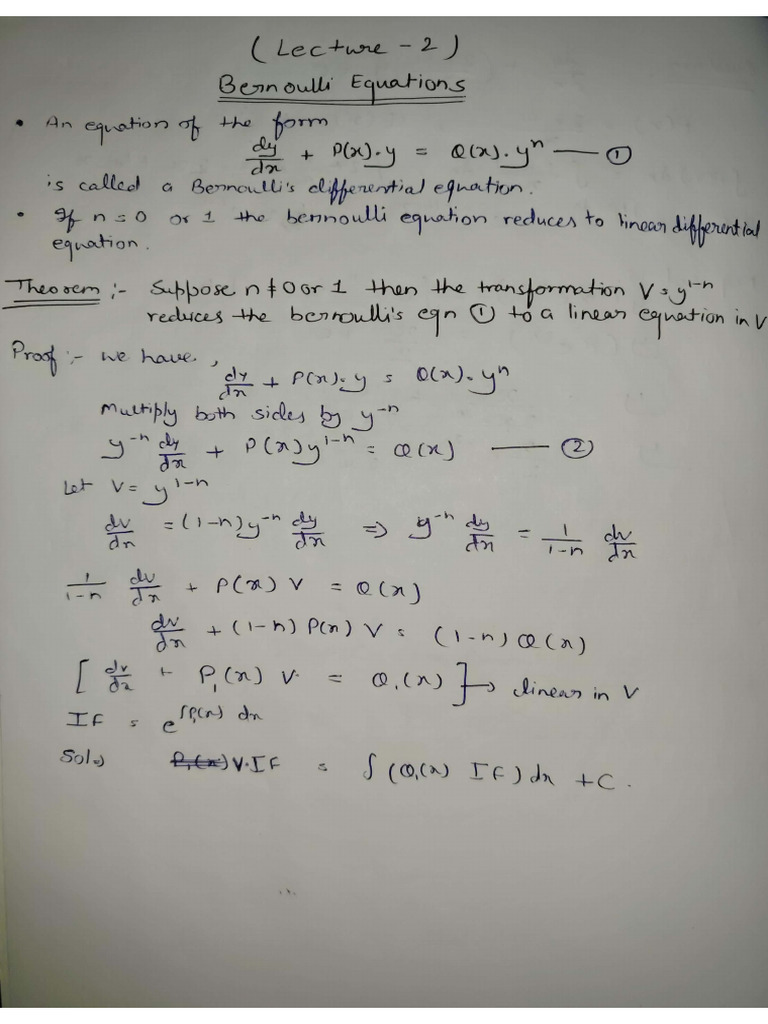 (Lecture - 2)
Bernoulli Equations
• An equation of the form
dy/dx + P(x).y = Q(x).yⁿ — ①
is called a Bernoulli's differential equation.
• If n = 0 or 1 the bernnoulli equation reduces to linear differential
equation.
Theorem :- Suppose n ≠ 0 or 1 then the transformation V = y¹⁻ⁿ
reduces the bernoulli's eqn ① to a linear equation in V
Proof :- we have,
dy/dx + P(x).y = Q(x).yⁿ
Multiply both sides by y⁻ⁿ
y⁻ⁿ dy/dx + P(x)y¹⁻ⁿ = Q(x) — ②
Let V = y¹⁻ⁿ
dv/dx = (1-n)y⁻ⁿ dy/dx ⇒ y⁻ⁿ dy/dx = 1/1-n dv/dx
1/1-n dv/dx + P(x) V = Q(x)
dv/dx + (1-n) P(x) V = (1-n) Q(x)
[dv/dx + P₁(x) V = Q₁(x)] → linear in V
IF = e^∫P₁(x) dx
Sol⇒ V.IF = ∫(Q₁(x) IF) dx + C.